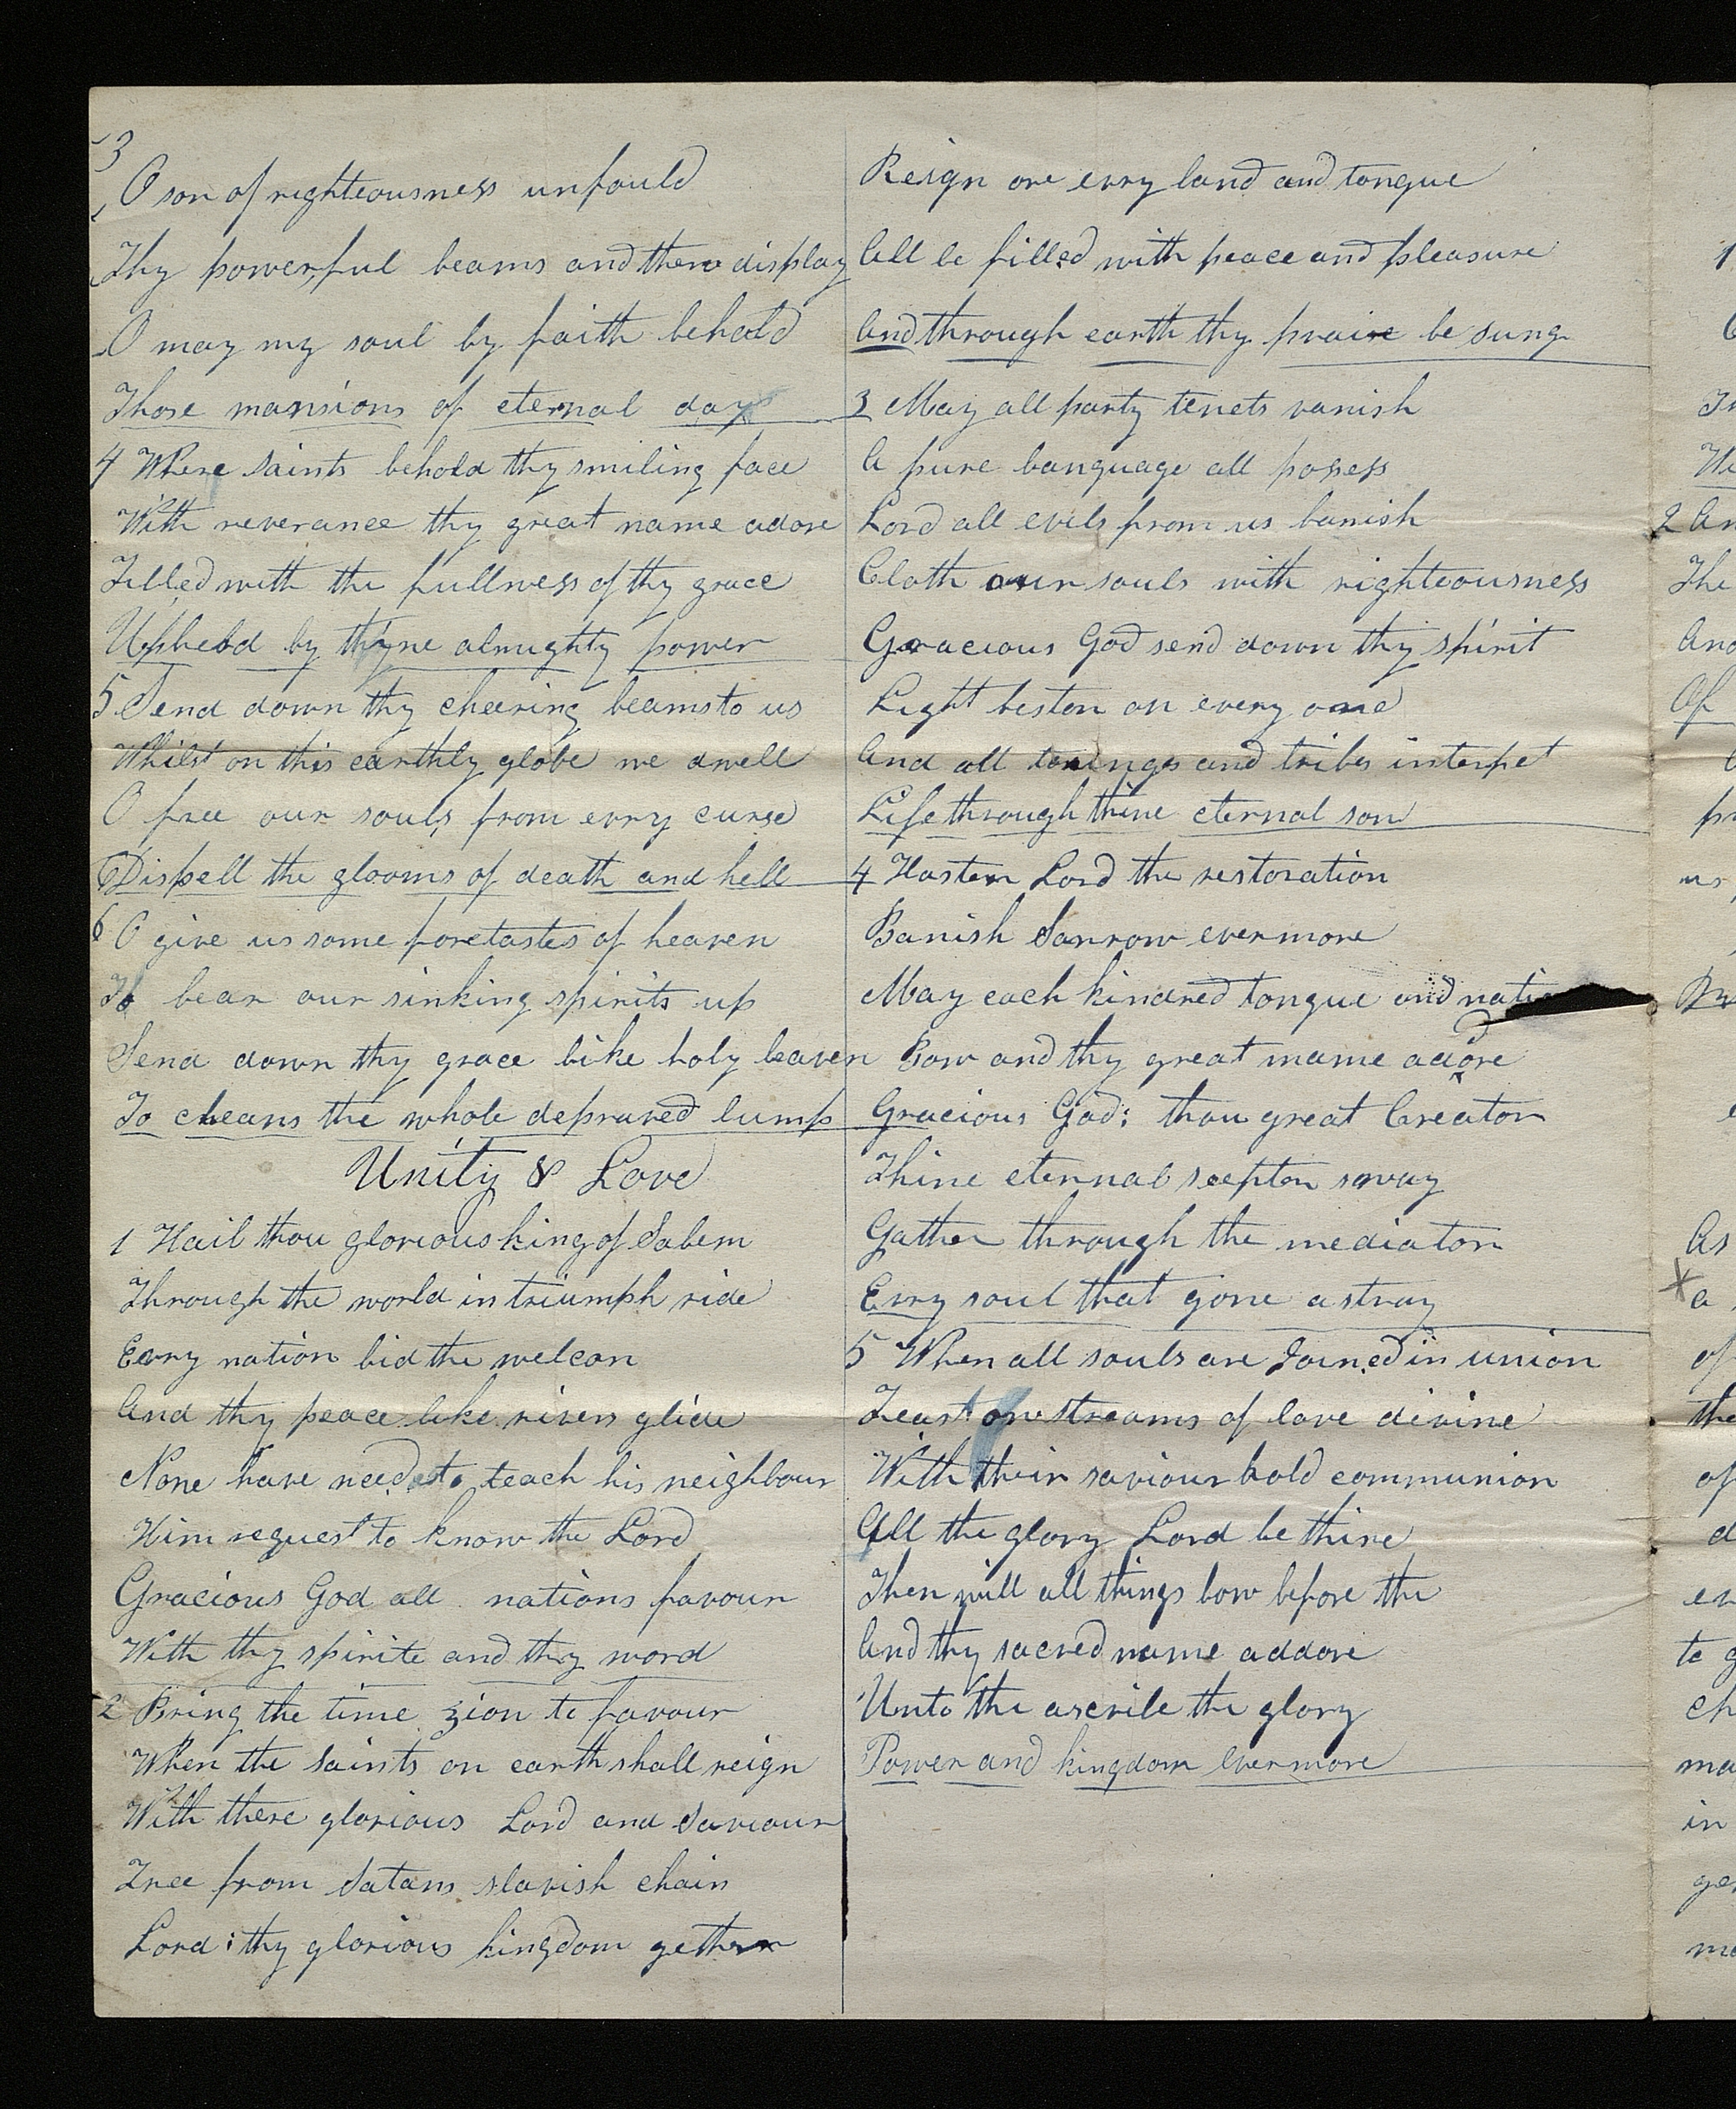 3
O son of righteousness unfould
Thy powerful beams and there display
O may my soul by faith behold
Those mansions of eternal day
4 Where saints behold thy smiling face
With reverance thy great name adore
Filled with the fullness of thy grace
Upheld by thyne almighty power
5 Send down thy cheering beams to us
Whilst on this earthly globe we dwell
O free our souls from evry curse
Dispell the glooms of death and hell
6 O give us some foretastes of heaven
To bear our sinking spirits up
Send down thy grace like holy leaven
To cleans the whole depraved lump
Unity & Love
1 Hail thou glorious king of Salem
Through the world in triumph ride
Evry nation bid the welcon
And thy peace like rivers glide
None have need to teach his neighbour
Him request to know the Lord
Gracious God all nations favour
With thy spirite and thy word
2 Bring the time zion to favour
When the saints on earth shall reign
With there glorious Lord and Saviour
Free from Satans slavish chain
Lord: thy glorious kingdom gether
Reign ore evry land and tongue
All be filled with peace and pleasure
And through earth thy praise be sung
3 May all party tenets vanish
A pure language all posess
Lord all evils from us banish
Cloth our souls with righteousness
Gracious God send down thy spirit
Light beston on every one
And all and tribes interpet
Life through thine eternal son
4 Hasten Lord the restoration
Banish Sorrow evermore
May each kindred tongue and natio
Bow and thy great name adore
Gracious God: thou great Creator
Thine eternal scepter sway
Gather through the mediator
Evry soul that gone astray
5 When all souls are Joined in union
Feast on streams of love divine
With their saviour hold communion
All the glory Lord be thine
Then will all things bow before the
And thy sacred name addore
Unto the ascribe the glory
Power and kingdom evermore
1
2 An
The
And
Of
pr
us
As
a
of
the
of
d
en
to g
ch
ma
in
ge
mo